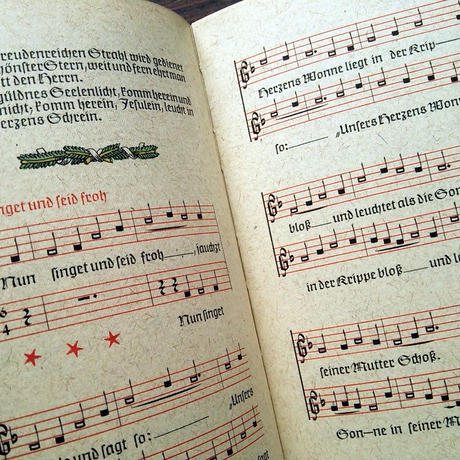 freudenreichen Strahl wird gedienet
schönster Stern, weit und fern ehrt man
Gott den Herrn.
güldnes Seelenlicht, komm herein und
nicht; komm herein, Jesulein, leucht in
Herzens Schrein.
Singet und seid froh
Nun singet und seid froh, jauchzt
6 4
Nun singet
und sagt so: „Unsers
Herzens Wonne liegt in der Krip-
so: „Unsers Herzens Wonne
bloß und leuchtet als die Son
in der Krippe bloß und le
seiner Mutter Schoß.
Son-ne in seiner M